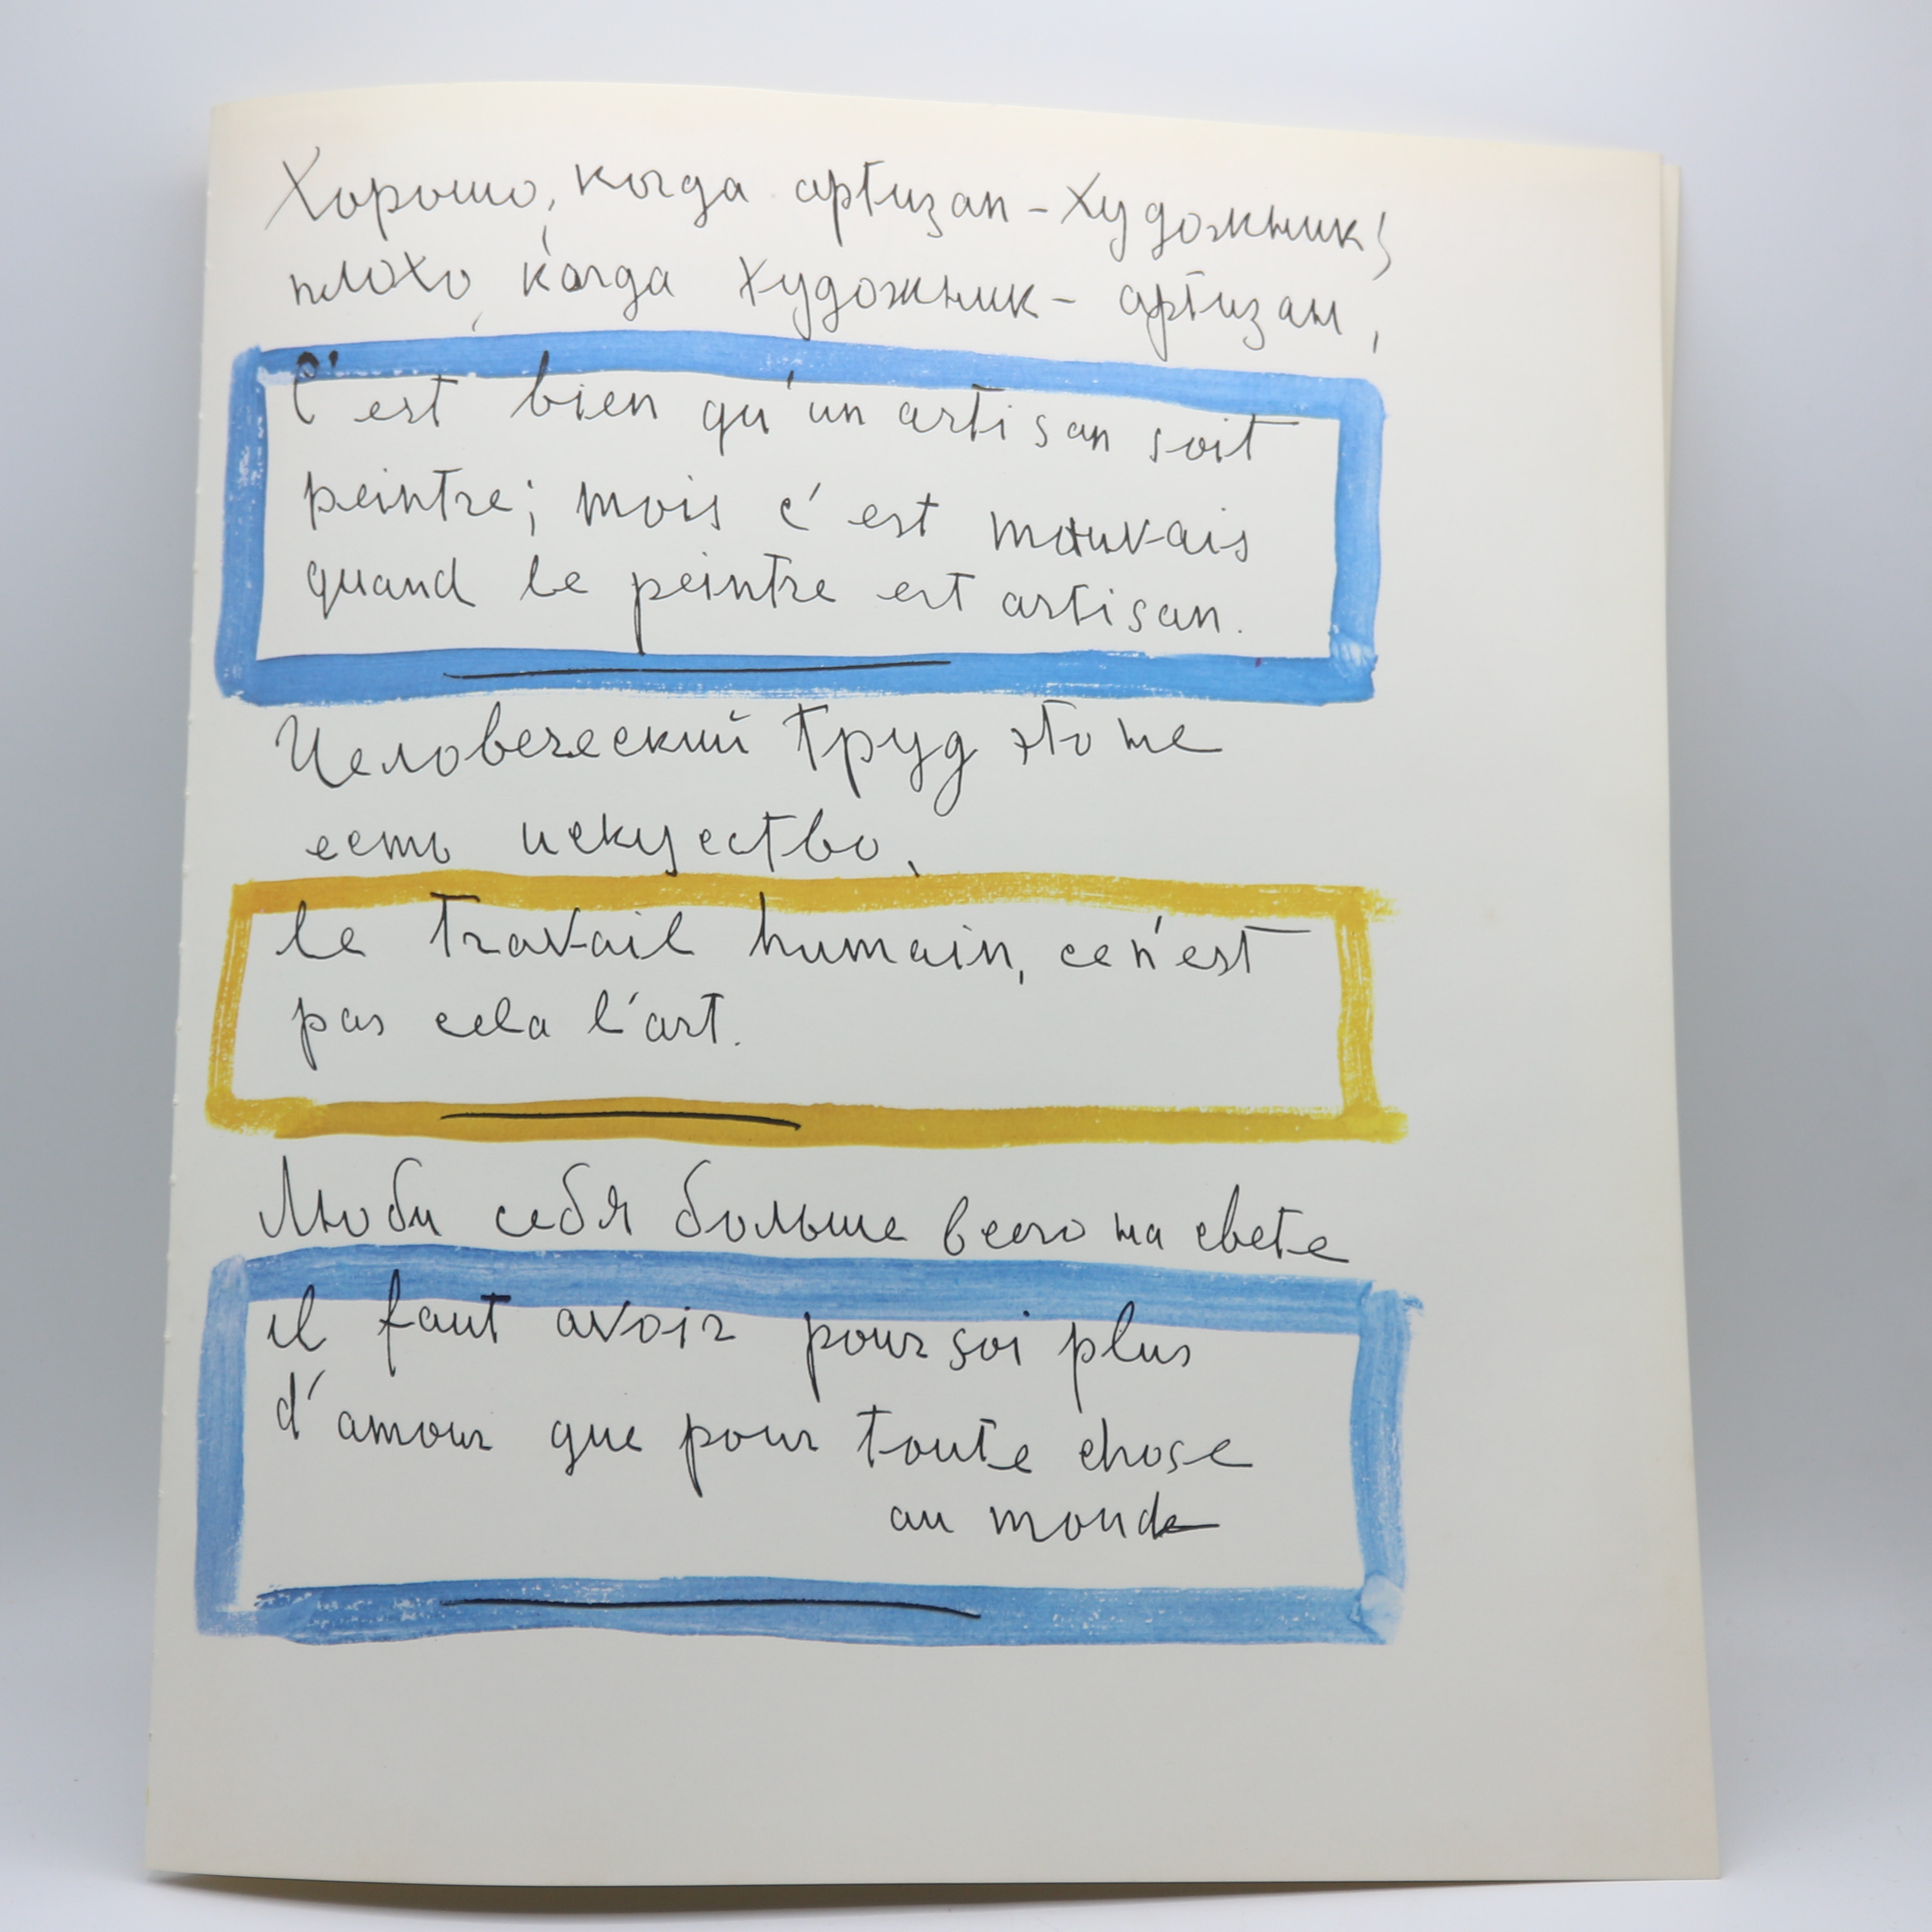 Хорошо, когда артизан - художник;
плохо, когда художник - артизан,
C'est bien qu'un artisan soit
peintre; mais c'est mauvais
quand le peintre est artisan.
Человеческий труд это не
есть искусство,
le travail humain, ce n'est
pas cela l'art.
Люби себя больше всего на свете
il faut avoir pour soi plus
d'amour que pour toute chose
au monde